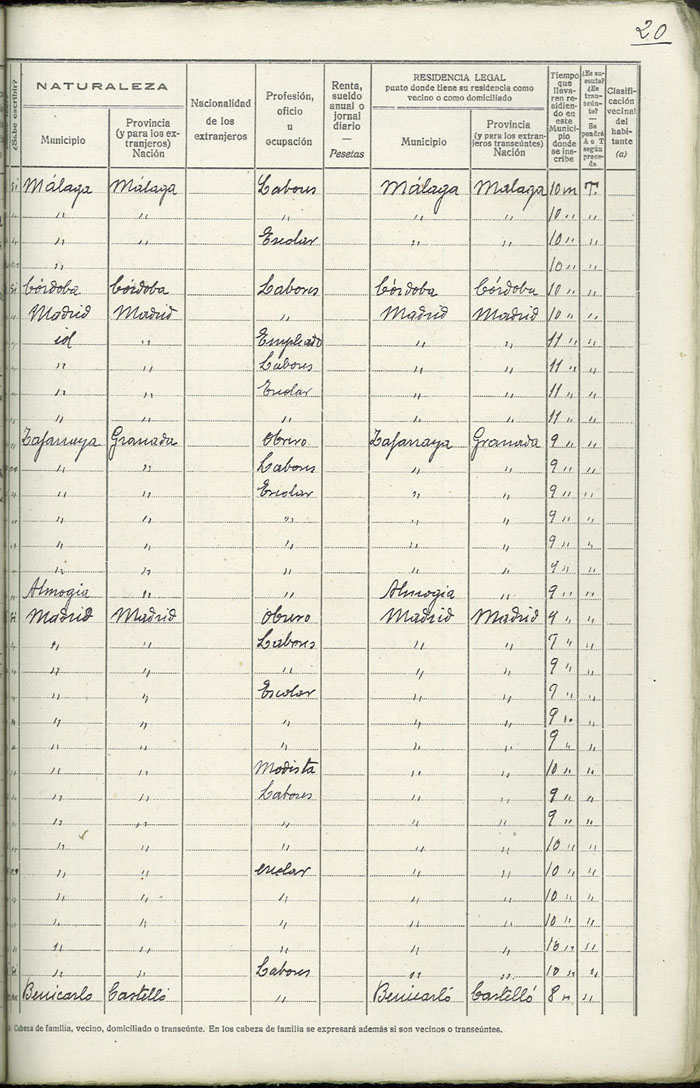 20
¿Sabe escribir?
NATURALEZA
Municipio
Provincia (y para los extranjeros) Nación
Nacionalidad de los extranjeros
Profesión, oficio u ocupación
Renta, sueldo anual o jornal diario — Pesetas
RESIDENCIA LEGAL
punto donde tiene su residencia como vecino o como domiciliado
Municipio
Provincia (y para los extranjeros transeúntes) Nación
Tiempo que llevan residiendo en este Municipio donde se inscribe
¿Es ausente? ¿Es transeúnte? — Se pondrá A o T según proceda
Clasificación vecinal del habitante (a)
Si Málaga Málaga Labores Málaga Malaga 10 m T.
" " " " " " 10 " "
" " " Escolar " " 10 " "
" 10 " "
Si Córdoba Córdoba Labores Córdoba Córdoba 10 " "
" Madrid Madrid " Madrid Madrid 10 " "
" id " Empleado " " 11 " "
" " " Labores " " 11 " "
" " " Escolar " " 11 " "
" " " " " " 11 " "
" Zafarraya Granada Obrero Zafarraya Granada 9 " "
" " Labores " " 9 " "
" " " Escolar " " 9 " "
" " " " " " 9 " "
" " " " " " 9 " "
" " " " " " 9 " "
" Almogia " " Almogia " 9 " "
Si Madrid Madrid Obrero Madrid Madrid 9 " "
" " " Labores " " 9 " "
" " " " " " 9 " "
" " " Escolar " " 9 " "
" " " " " " 9 " "
" " " " " " 9 " "
" " " Modista " " 10 " "
" " " Labores " " 9 " "
" " " " " " 9 " "
" " " " " " 10 " "
" " escolar " " 10 " "
" " " " " " 10 " "
" " " " " " 10 " "
" " " " " " 10 " "
Si " " Labores " " 10 " "
Benicarló Castelló " Benicarló Castelló 8 " "
Cabeza de familia, vecino, domiciliado o transeúnte. En los cabeza de familia se expresará además si son vecinos o transeúntes.